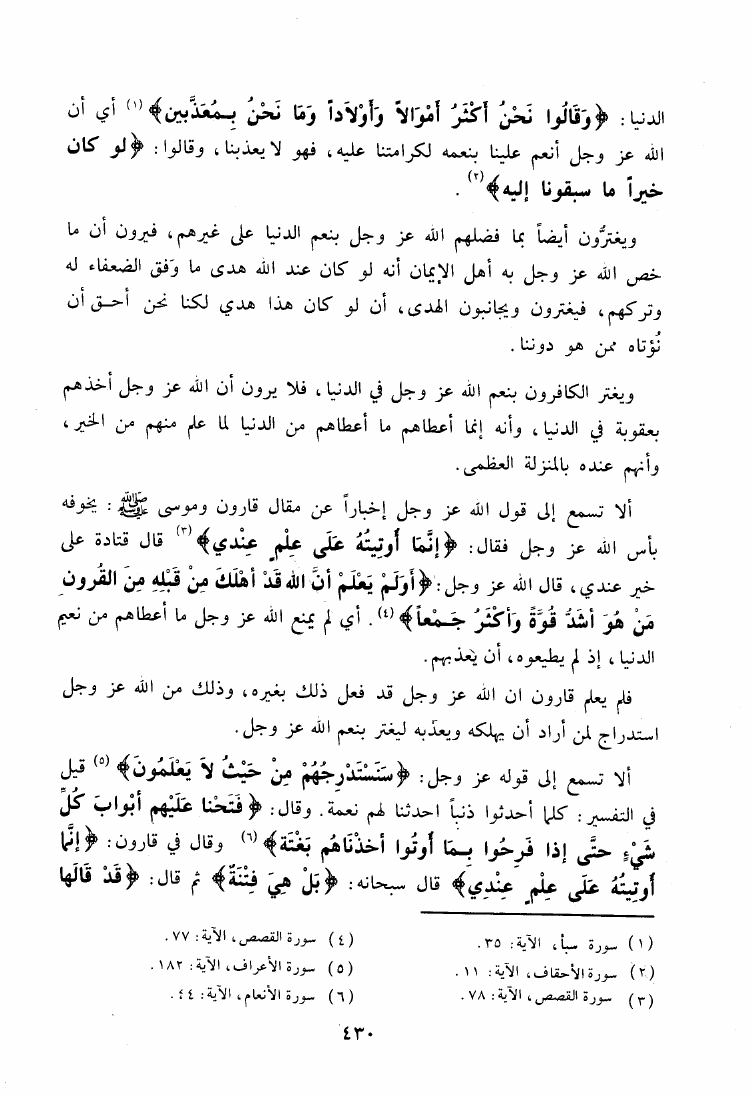 الدنيا: ﴿وَقَالُوا نَحْنُ أَكْثَرُ أَمْوَالاً وَأَوْلاَداً وَمَا نَحْنُ بِـمُعَذَّبين﴾ (١) أي أن
الله عز وجل أنعم علينا بنعمه لكرامتنا عليه، فهو لا يعذبنا، وقالوا: ﴿لو كان
خيراً ما سبقونا إليه﴾ (٢).
ويغترُّون أيضاً بما فضلهم الله عز وجل بنعم الدنيا على غيرهم، فيرون أن ما
خص الله عز وجل به أهل الإيمان أنه لو كان عند الله هدى ما وَفق الضعفاء له
وتركهم، فيغترون ويجانبون الهدى، أن لو كان هذا هدي لكنا نحن أحـق أن
نُؤتاه ممن هو دوننا.
ويغتر الكافرون بنعم الله عز وجل في الدنيا، فلا يرون أن الله عز وجل أخذهم
بعقوبة في الدنيا، وأنه إنما أعطاهم ما أعطاهم من الدنيا لما علم منهم من الخير،
وأنهم عنده بالمنزلة العظمى.
ألا تسمع إلى قول الله عز وجل إخباراً عن مقال قارون وموسى ﷺ: يخوفه
بأس الله عز وجل فقال: ﴿إنَّمَا أُوتِيتُهُ عَلَى عِلْمٍ عِنْدي﴾ (٣) قال قتادة على
خير عندي، قال الله عز وجل: ﴿أَوَلَمْ يَعْلَمْ أنَّ الله قَدْ أهْلَكَ مِنْ قَبْلِهِ مِنَ القُرونِ
مَنْ هُوَ أشَدُّ قُوَّةً وَأكْثَرُ جَـمْعاً﴾ (٤). أي لم يمنع الله عز وجل ما أعطاهم من نعيم
الدنيا، إذ لم يطيعوه، أن يَعذبهم.
فلم يعلم قارون ان الله عز وجل قد فعل ذلك بغيره، وذلك من الله عز وجل
استدراج لمن أراد أن يهلكه ويعذبه ليغتر بنعم الله عز وجل.
ألا تسمع إلى قوله عز وجل: ﴿سَنَسْتَدْرِجُهُمْ مِنْ حَيْثُ لاَ يَعْلَمُونَ﴾ (٥) قيل
في التفسير: كلما أحدثوا ذنباً احدثنا لهم نعمة. وقال: ﴿فَتَحْنا عَلَيْهِم أبْوابَ كُلِّ
شَيْءٍ حتَّى إذا فَرِحُوا بِـمَا أُوتُوا أخَذْنَاهُم بَغْتَة﴾ (٦) وقال في قارون: ﴿إنَّما
أُوتِيتُهُ عَلَى عِلْمٍ عِنْدِي﴾ قال سبحانه: ﴿بَلْ هِيَ فِتْنَةٌ﴾ ثم قال: ﴿قَدْ قَالَها
(١) سورة سبأ، الآية: ٣٥.
(٢) سورة الأحقاف، الآية: ١١.
(٣) سورة القصص، الآية: ٧٨.
(٤) سورة القصص، الآية: ٧٧.
(٥) سورة الأعراف، الآية: ١٨٢.
(٦) سورة الأنعام، الآية: ٤٤.
٤٣٠